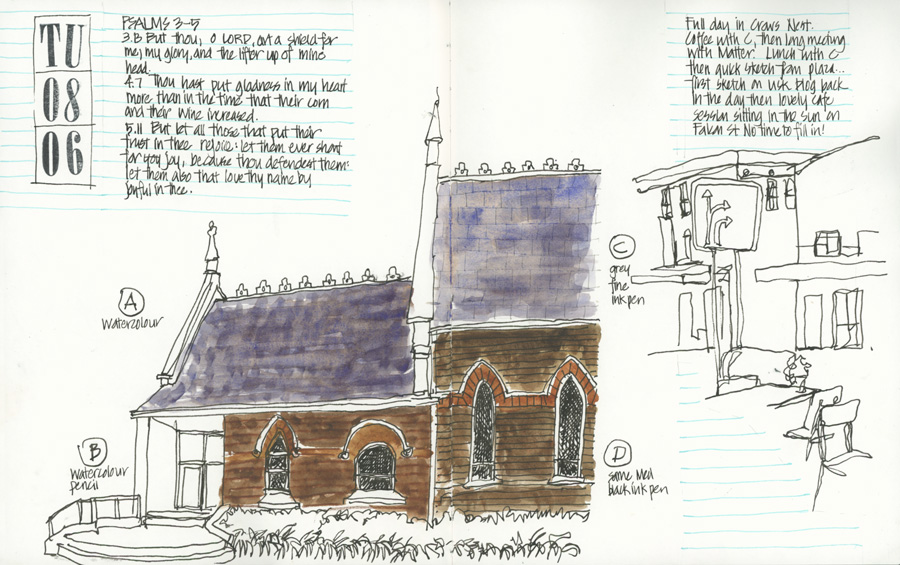 TU
08
06
PSALMS 3-5
3.3 But thou, O LORD, art a shield for
me; my glory, and the lifter up of mine
head.
4.7 Thou hast put gladness in my heart
more than in the time that their corn
and their wine increased.
5.11 But let all those that put their
trust in thee rejoice: let them ever shout
for joy, because thou defendest them:
let them also that love thy name by
joyful in thee.
Full day in Crows Nest.
Coffee with C, then long meeting
with Matter. Lunch with C
then quick sketch from plaza...
first sketch on usk blog back
in the day then lovely cafe
session sitting in the sun on
St No time to fill in!
A
watercolour
B
watercolour
pencil
C
grey
fine
ink pen
D
some med
black ink pen